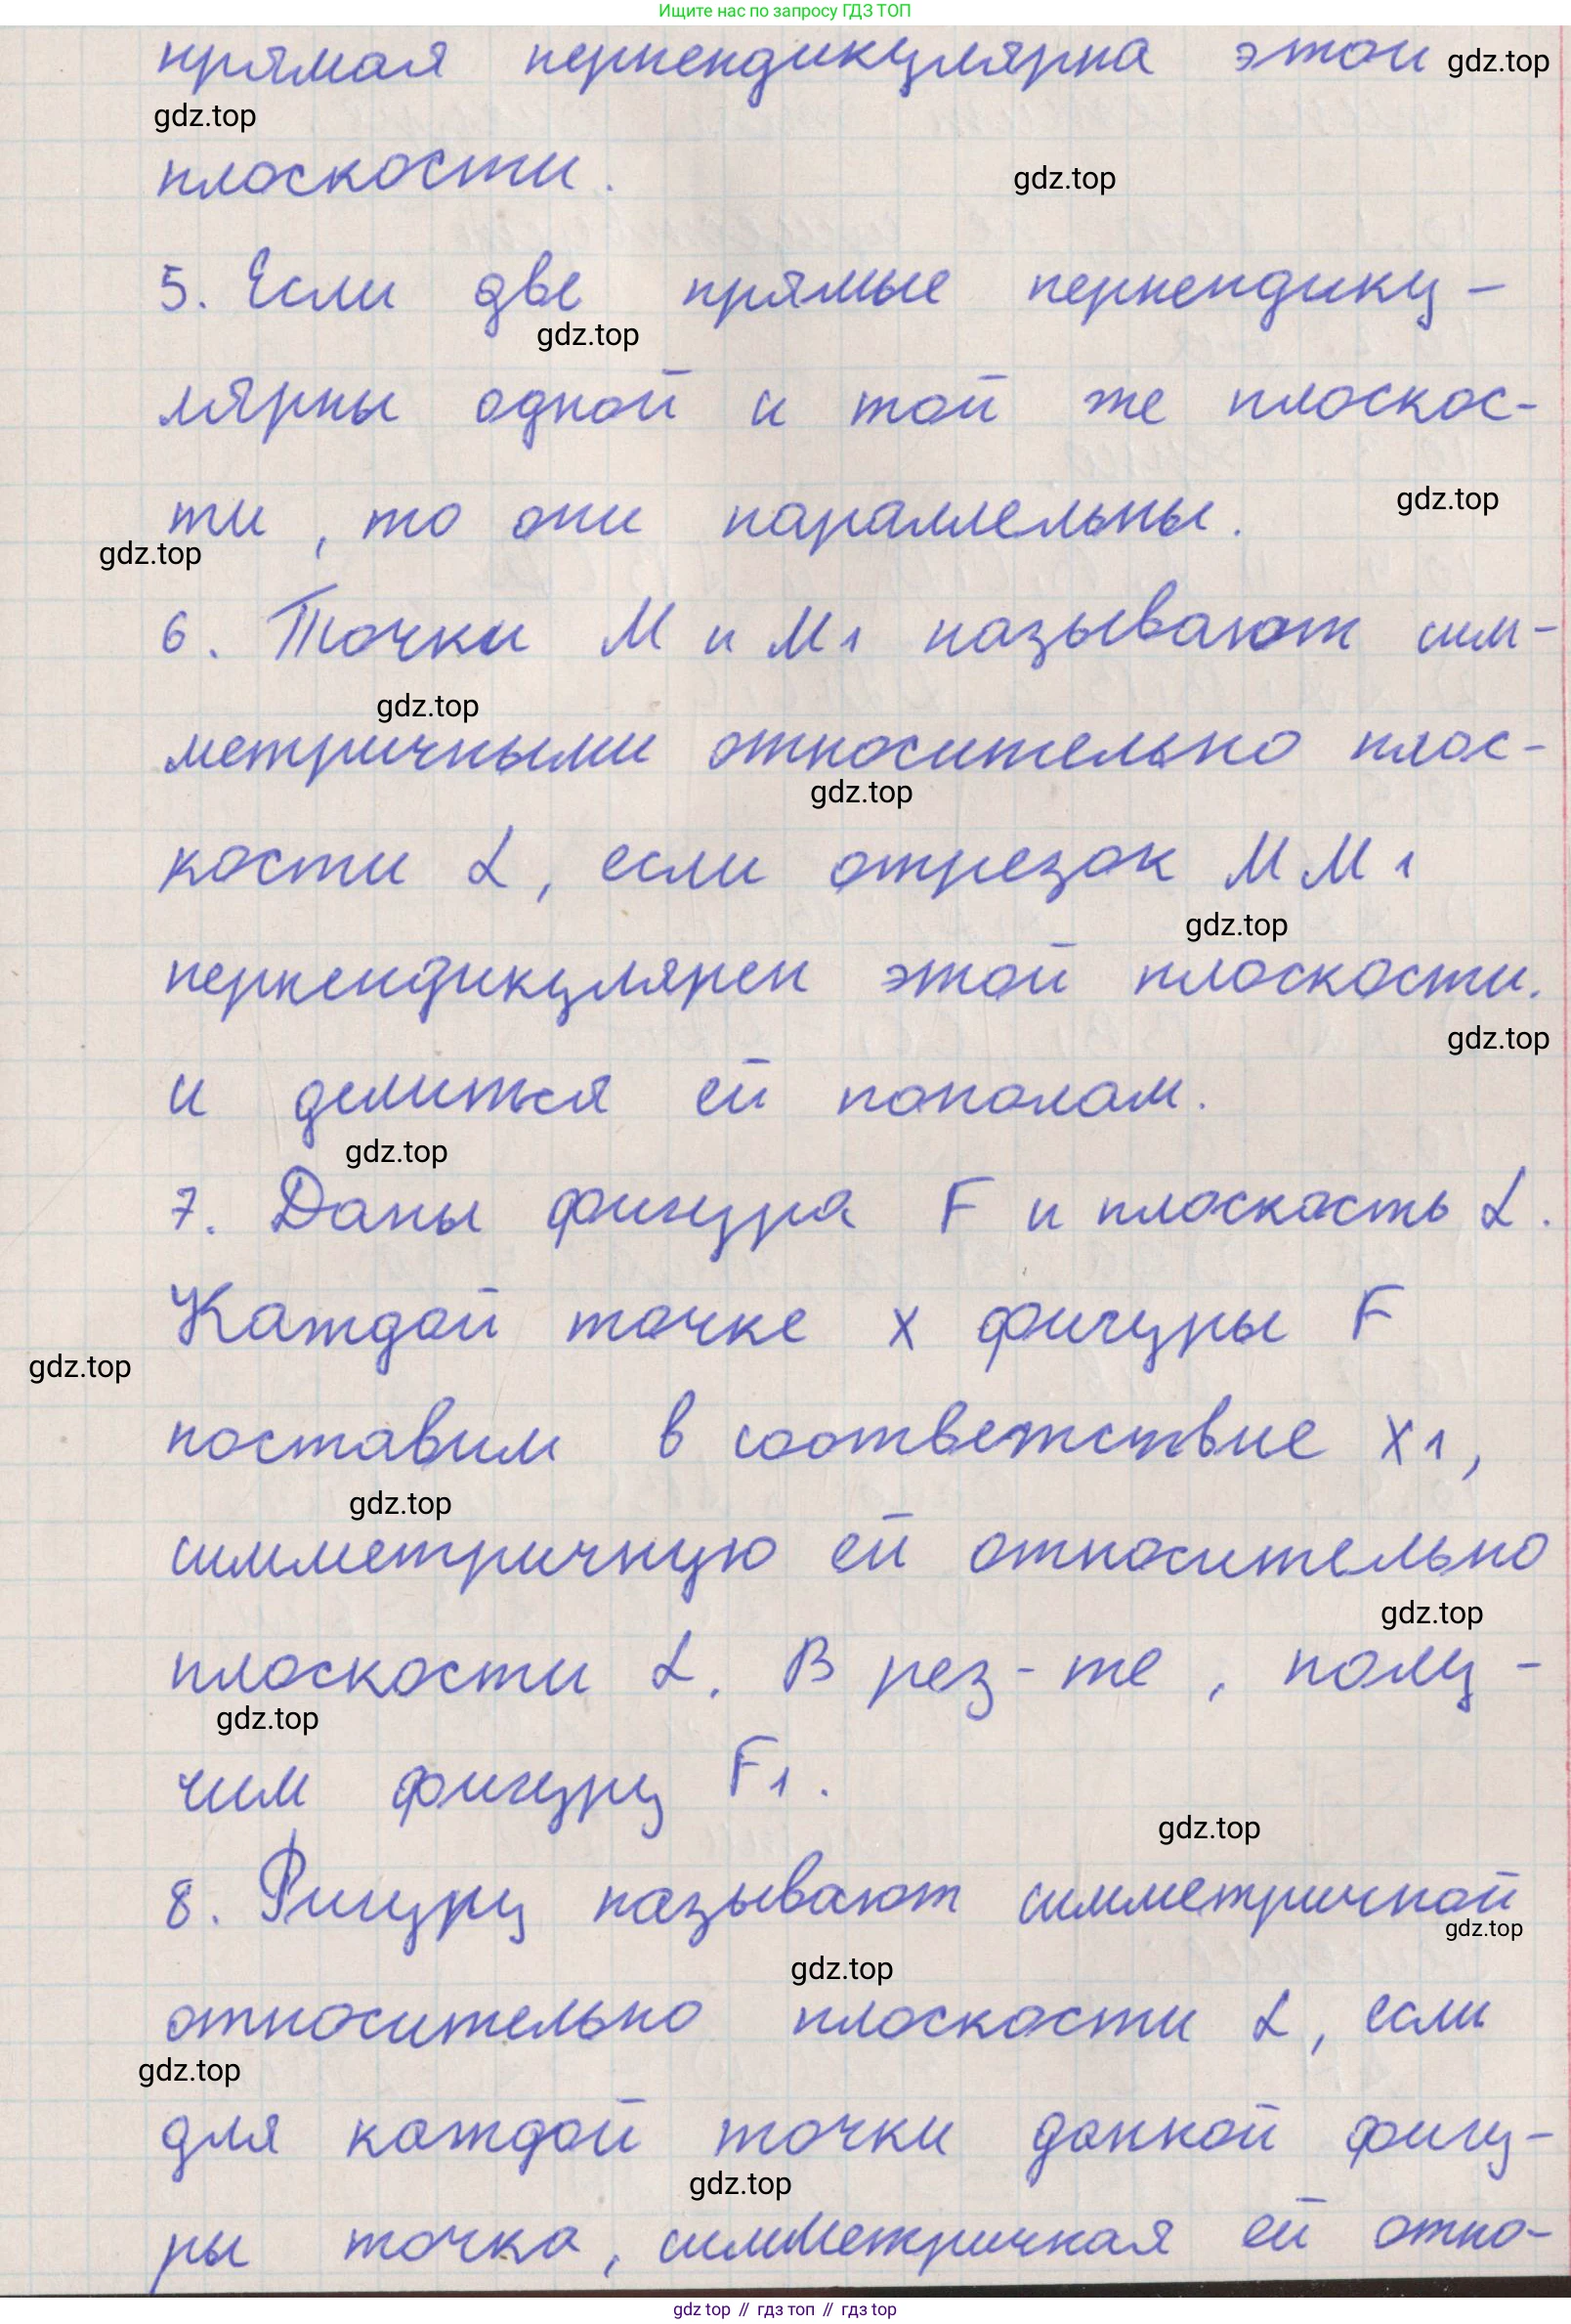 Ищите нас по запросу ГДЗ ТОП
прямая перпендикулярна этой gdz.top
gdz.top
плоскости. gdz.top
5. Если две прямые перпендику-
gdz.top
лярны одной и той же плоскос-
gdz.top
ти, то они параллельны.
gdz.top
6. Точки M и M1 называют сим-
gdz.top
метричными относительно плос-
gdz.top
кости α, если отрезок MM1
gdz.top
перпендикулярен этой плоскости.
gdz.top
и делиться ей пополам.
gdz.top
7. Даны фигура F и плоскость α.
Каждой точке X фигуры F
gdz.top
поставим в соответствие X1,
gdz.top
симметричную ей относительно
gdz.top
плоскости α. В рез-те, полу-
gdz.top
чим фигуру F1.
gdz.top
8. Фигуру называют симметричной
gdz.top
gdz.top
относительно плоскости α, если
gdz.top
для каждой точки данной фигу-
gdz.top
ры точка, симметричная ей отно-
gdz top // гдз топ // гдз top